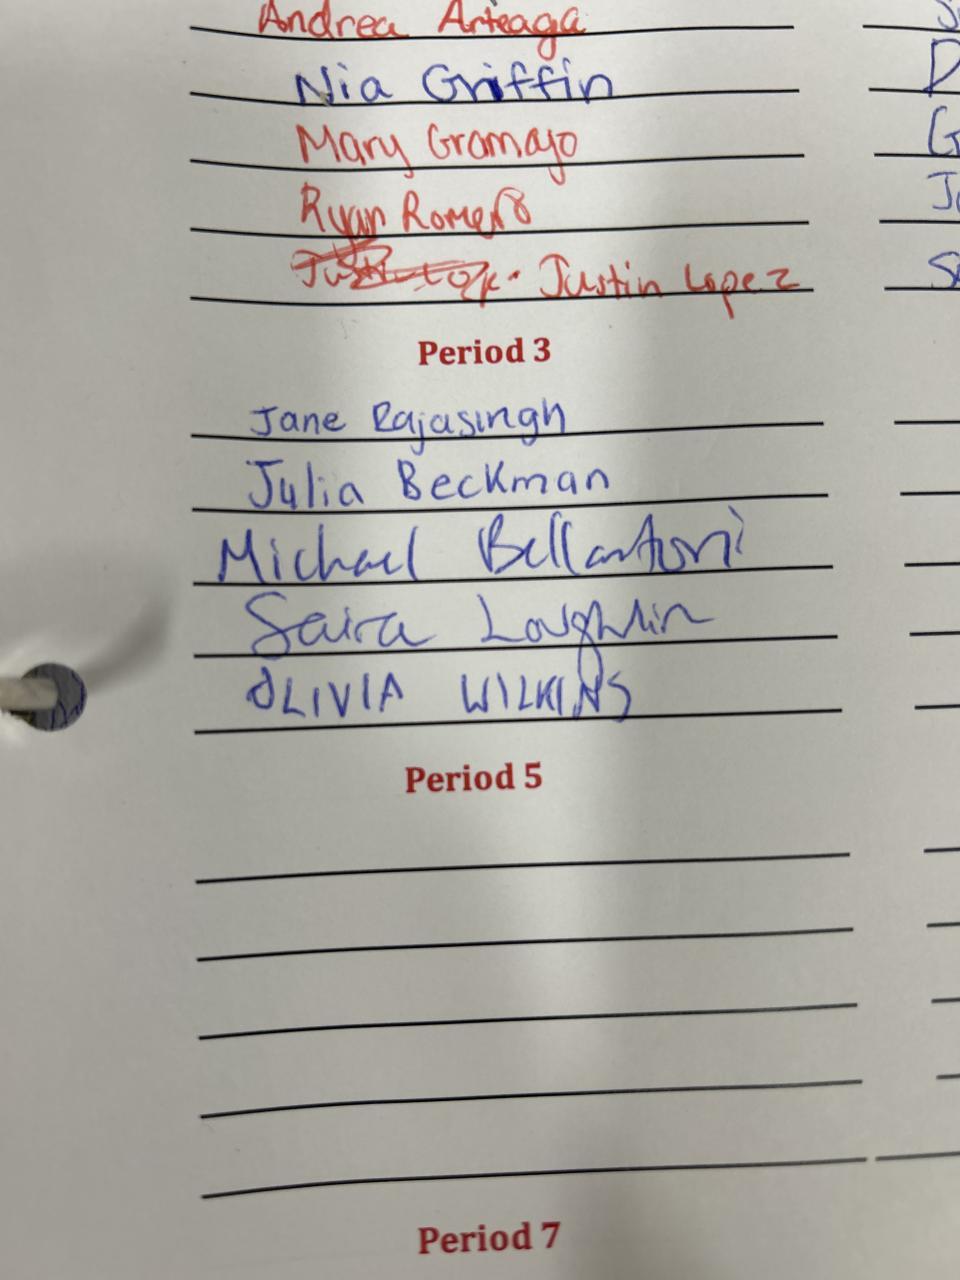 Andrea Arteaga
Nia Griffin
D
Mary Gramajo
G
Ryan Romero
Jo
Justin Lopez
S
Period 3
Jane Rajasingh
Julia Beckman
Michael Bellantoni
Saira Loughlin
OLIVIA WILKINS
Period 5
Period 7